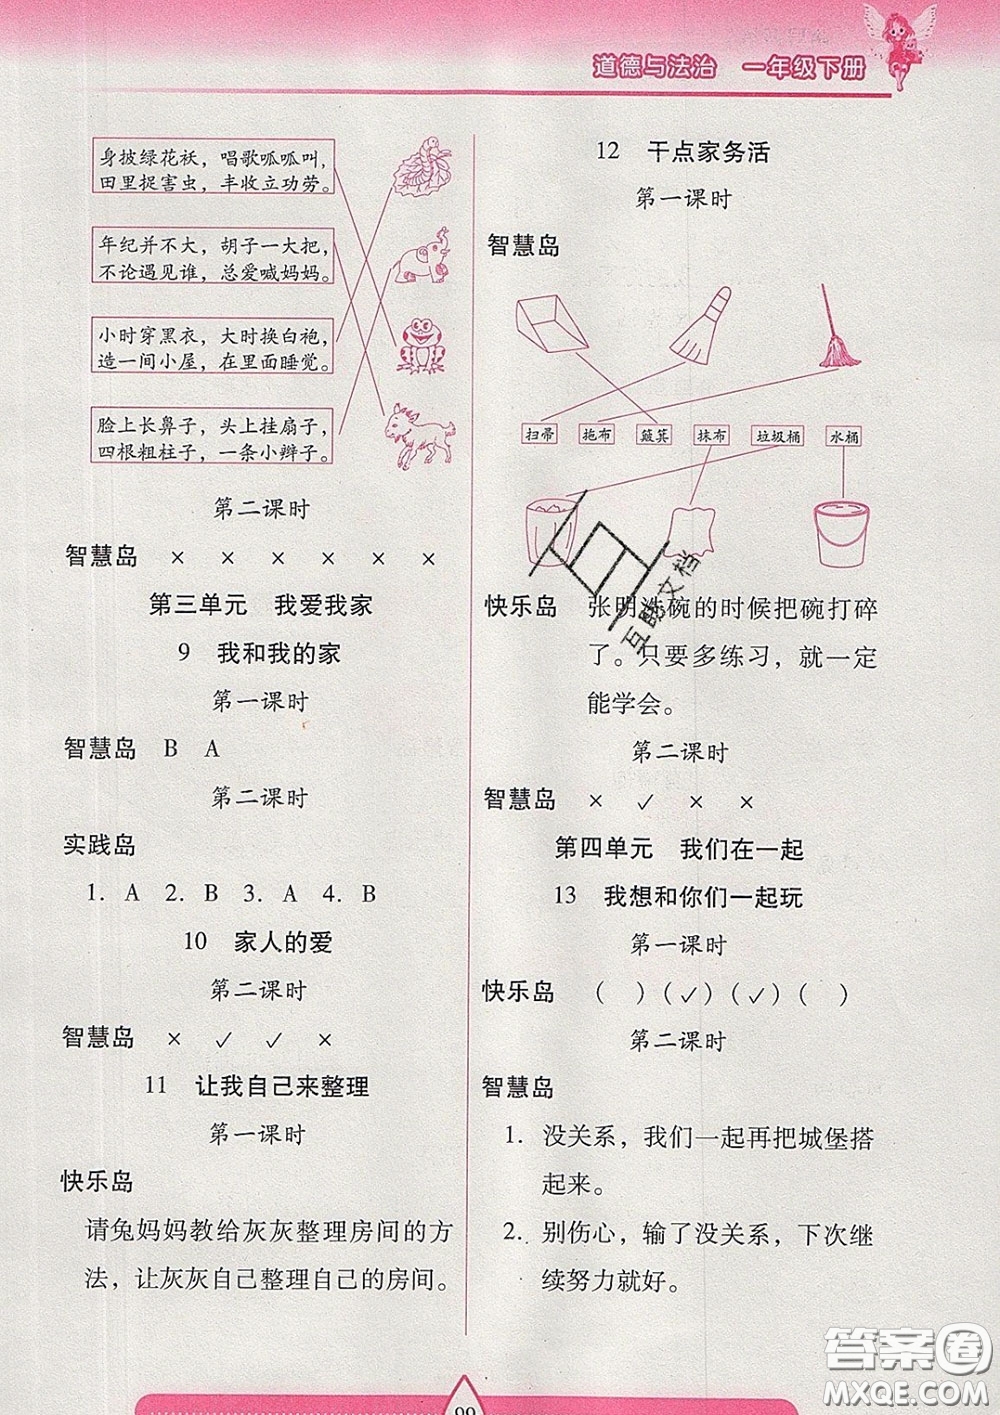 道德与法治 一年级下册
身披绿花袄，唱歌呱呱叫，
田里捉害虫，丰收立功劳。
年纪并不大，胡子一大把，
不论遇见谁，总爱喊妈妈。
小时穿黑衣，大时换白袍，
造一间小屋，在里面睡觉。
脸上长鼻子，头上挂扇子，
四根粗柱子，一条小辫子。
第二课时
智慧岛 × × × × × ×
第三单元 我爱我家
9 我和我的家
第一课时
智慧岛 B A
第二课时
实践岛
1. A 2. B 3. A 4. B
10 家人的爱
第二课时
智慧岛 × ✓ ✓ ×
11 让我自己来整理
第一课时
快乐岛
请兔妈妈教给灰灰整理房间的方
法，让灰灰自己整理自己的房间。
12 干点家务活
第一课时
智慧岛
扫帚 拖布 簸箕 抹布 垃圾桶 水桶
快乐岛 张明洗碗的时候把碗打碎
了。只要多练习，就一定
能学会。
第二课时
智慧岛 × ✓ × ×
第四单元 我们在一起
13 我想和你们一起玩
第一课时
快乐岛 （ ）（✓）（✓）（ ）
第二课时
智慧岛
1. 没关系，我们一起再把城堡搭
起来。
2. 别伤心，输了没关系，下次继
续努力就好。
99
互联文档
答案圈
MXQE.COM